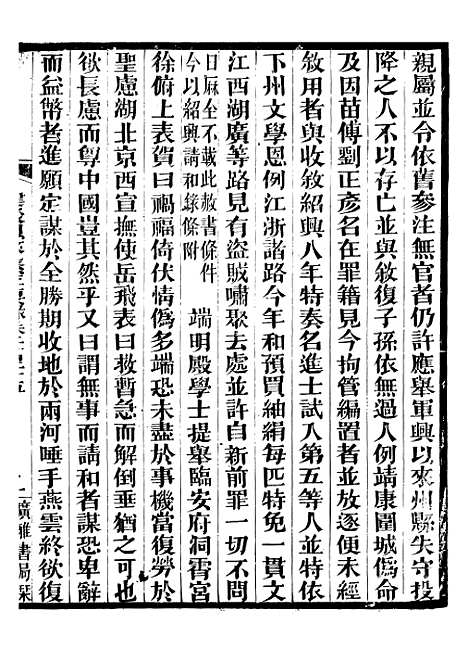 親屬並令依舊參注無官者仍許應舉軍興以來州縣失守投
降之人不以存亡並與敘復子孫依無過人例靖康圍城僞命
及因苗傅劉正彥名在罪籍見今拘管編置者並放逐便未經
敘用者與收敘紹興八年特奏名進士試入第五等人並特依
下州文學恩例江浙諸路今年和預買紬絹每匹特免一貫文
江西湖廣等路見有盜賊嘯聚去處並許自新前罪一切不問
日厤全不載此赦書條件
今以紹興請和錄修附
端明殿學士提舉臨安府洞霄宮
徐俯上表賀曰禍福倚伏情僞多端恐未盡於事機當復勞於
聖慮湖北京西宣撫使岳飛表曰救暫急而解倒垂猶之可也
欲長慮而尊中國豈其然乎又曰謂無事而請和者謀恐卑辭
而益幣者進願定謀於全勝期收地於兩河唾手燕雲終欲復
廣雅書局栞